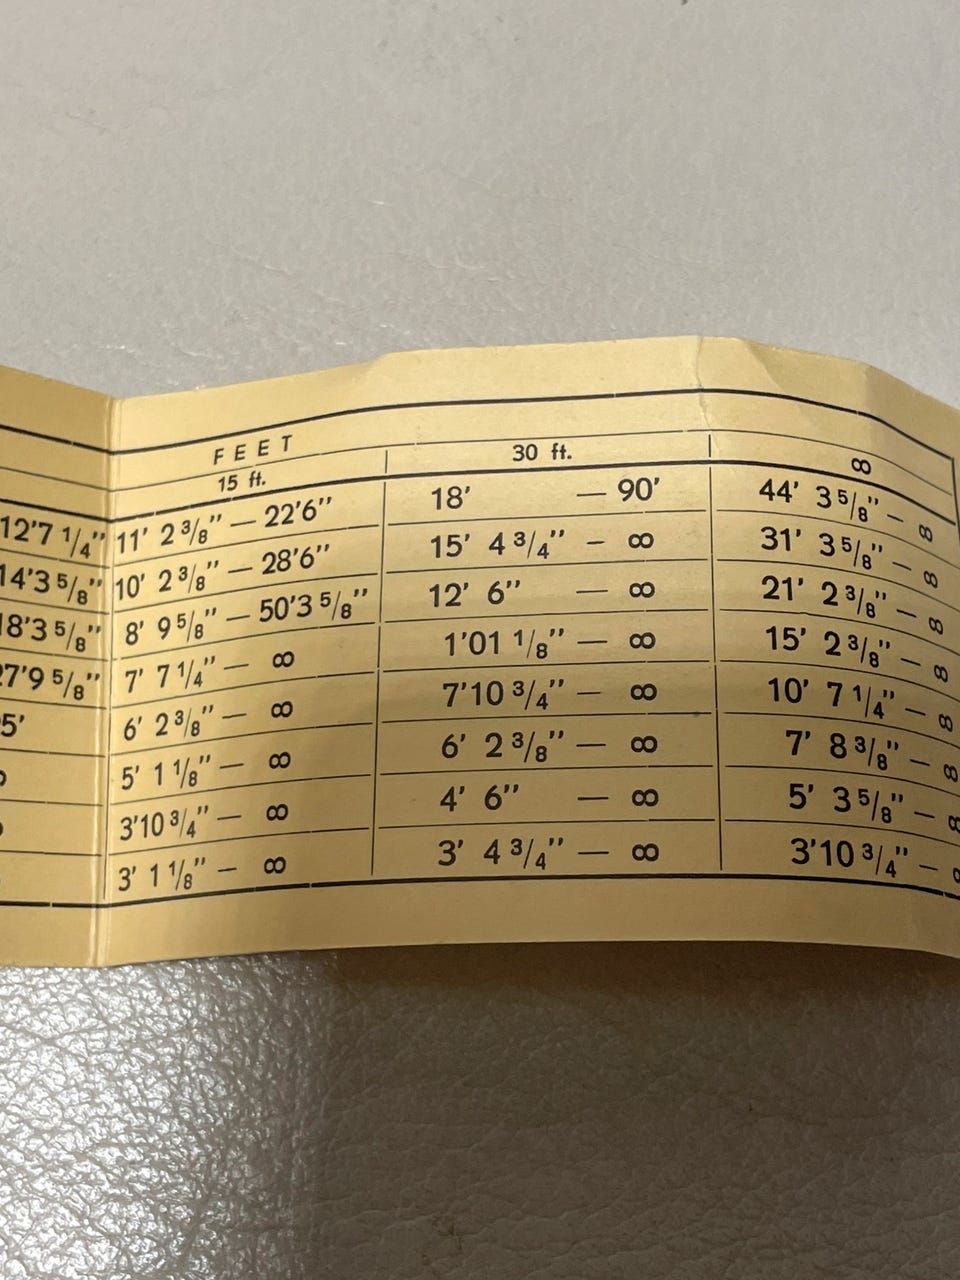 FEET
15 ft. 30 ft. ∞
12'7 1/4" 11' 2 3/8" — 22'6" 18' — 90' 44' 3 5/8" — ∞
14'3 5/8" 10' 2 3/8" — 28'6" 15' 4 3/4" — ∞ 31' 3 5/8" — ∞
18'3 5/8" 8' 9 5/8" — 50'3 5/8" 12' 6" — ∞ 21' 2 3/8" — ∞
27'9 5/8" 7' 7 1/4" — ∞ 1'01 1/8" — ∞ 15' 2 3/8" — ∞
5' 6' 2 3/8" — ∞ 7'10 3/4" — ∞ 10' 7 1/4" — ∞
5' 1 1/8" — ∞ 6' 2 3/8" — ∞ 7' 8 3/8" — ∞
3'10 3/4" — ∞ 4' 6" — ∞ 5' 3 5/8" — ∞
3' 1 1/8" — ∞ 3' 4 3/4" — ∞ 3'10 3/4" — ∞